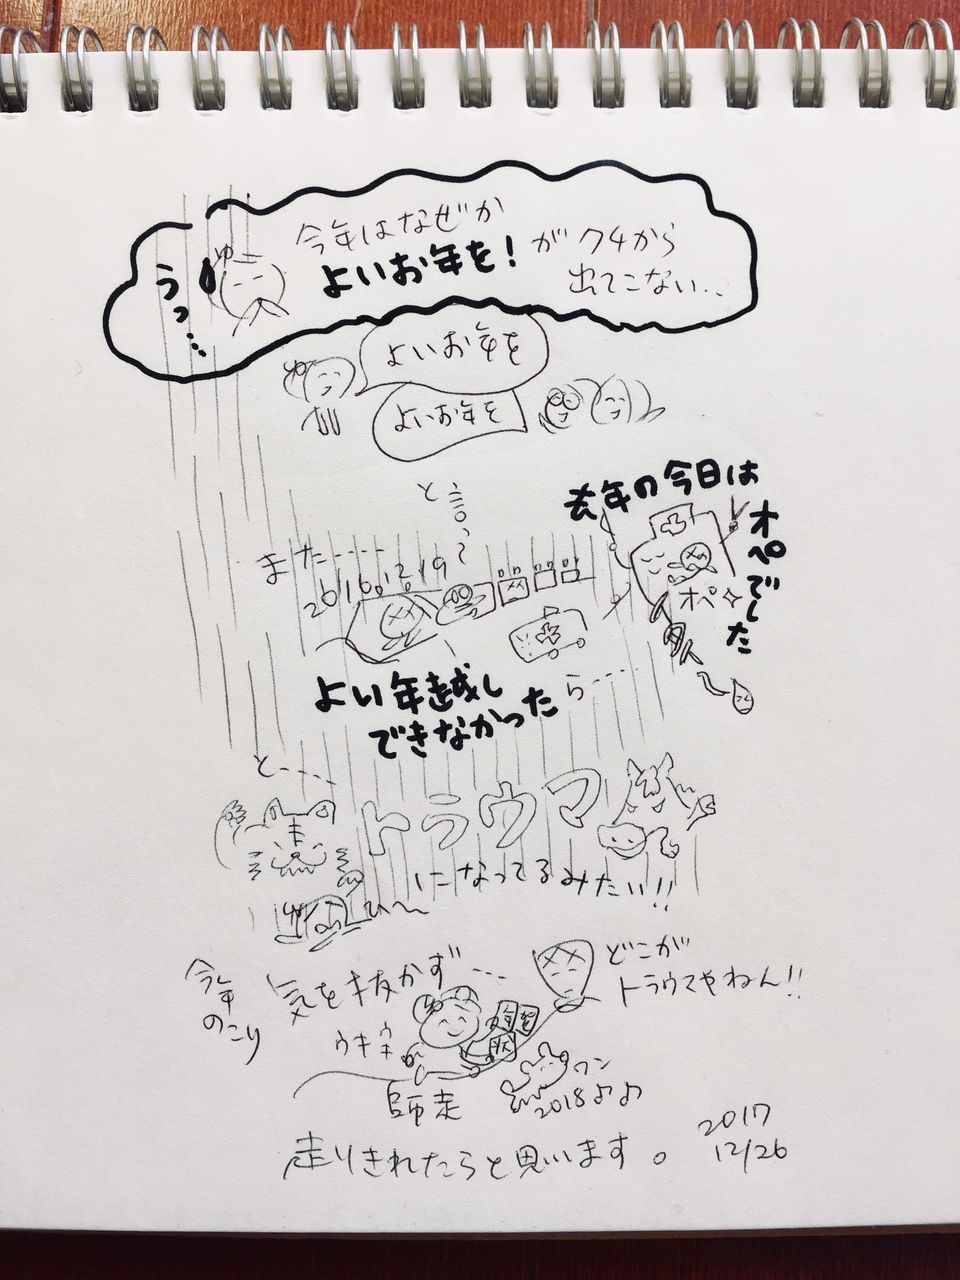 今年はなぜか
よいお年を!
がクチから
出てこない...
ゆ
うっ...
よいお年を
よいお年を
と言って
去年の今日は
オペでした
オペ
また----
2016.12.19
よい年越し
できなかった
ら----
と----
トラウマ
になってるみたい!!
ひ〜
今年
のこり
気を抜かず...
どこが
トラウマやねん!!
ウキ
ウキ
年賀
状
ワン
2018
師走
走りきれたらと思います。
2017
12/26